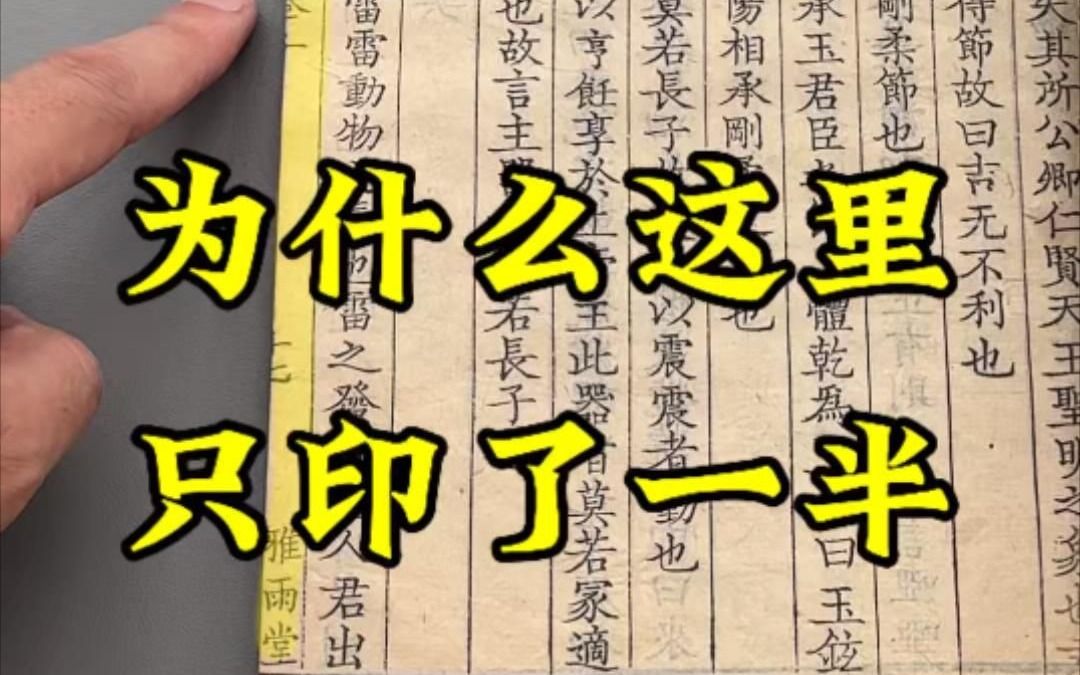 为什么这里
只印了一半
其所公卿仁賢天王聖明之象也
待節故曰吉无不利也
剛柔節也
承玉君臣 體乾爲 曰玉鉉
陽相承剛 也
莫若長子 以震震者動也
以亨飪享於上 主此器者莫若冢適
也故言主器 若長子
雷雷動物 雷之發 人君出
雅雨堂